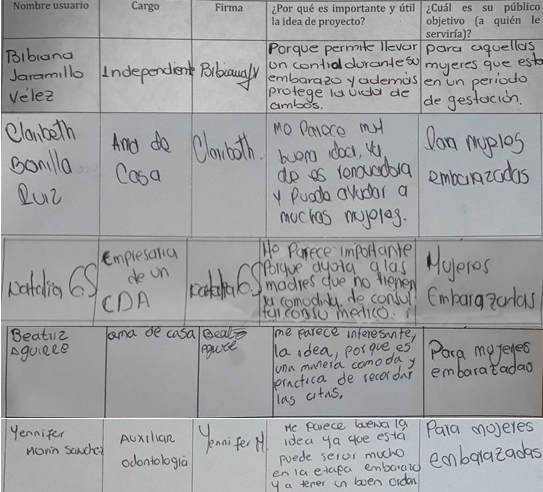 Nombre usuario
Cargo
Firma
¿Por qué es importante y útil
la idea de proyecto?
¿Cuál es su público
objetivo (a quién le
serviría)?
Bibiana
Jaramillo
Vélez
Independiente
Bibiana JV
Porque permite llevar
un control durante su
embarazo y además
protege la vida de
ambos.
para aquellas
mujeres que esta
en un período
de gestación.
Claribeth
Bonilla
Ruiz
Ama de
Casa
Claribeth.
Me Parece muy
buena idea, ya
de es renovadora
y puede ayudar a
muchas mujeres.
Para mujeres
embarazadas
Natalia GS
Empresaria
de un
CDA
Natalia GS
Me Parece importante
Porque ayuta a las
madres que no tienen
la comodida de consul
tar con su medico.
Mujeres
Embarazadas
Beatriz
Aguirre
ama de casa
Beatriz
Aguirre
me parece interesante,
la idea, porque es
una manera comoda y
practica de recordar
las citas.
Para mujeres
embarazadas
Yennifer
Morin Sanchez
Auxiliar
odontologia
Yennifer M.
Me parece buena la
idea ya que esta
puede servir mucho
en la etapa embarazo
y a tener un buen orden
Para mujeres
embarazadas